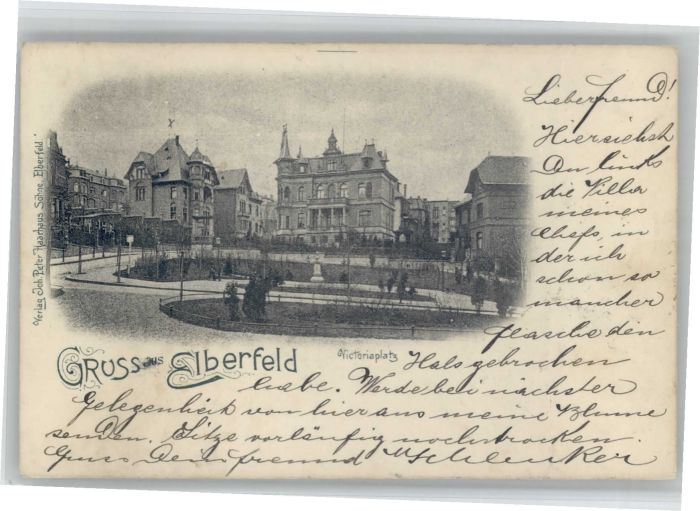 Verlag Joh. Peter Haarhaus Söhne, Elberfeld
GRUSS aus Elberfeld
Victoriaplatz
Lieberfreund O!
Hiersichst
Du links
die Villa
meines
Chefs, in
der ich
schon so
mancher
flasche den
Hals gebrochen
habe. Werde bei nächster
Gelegenheit von hier aus meine Blume
senden. Sitze vorläufig noch trocken.
Gruss Dein freund M Schlenker